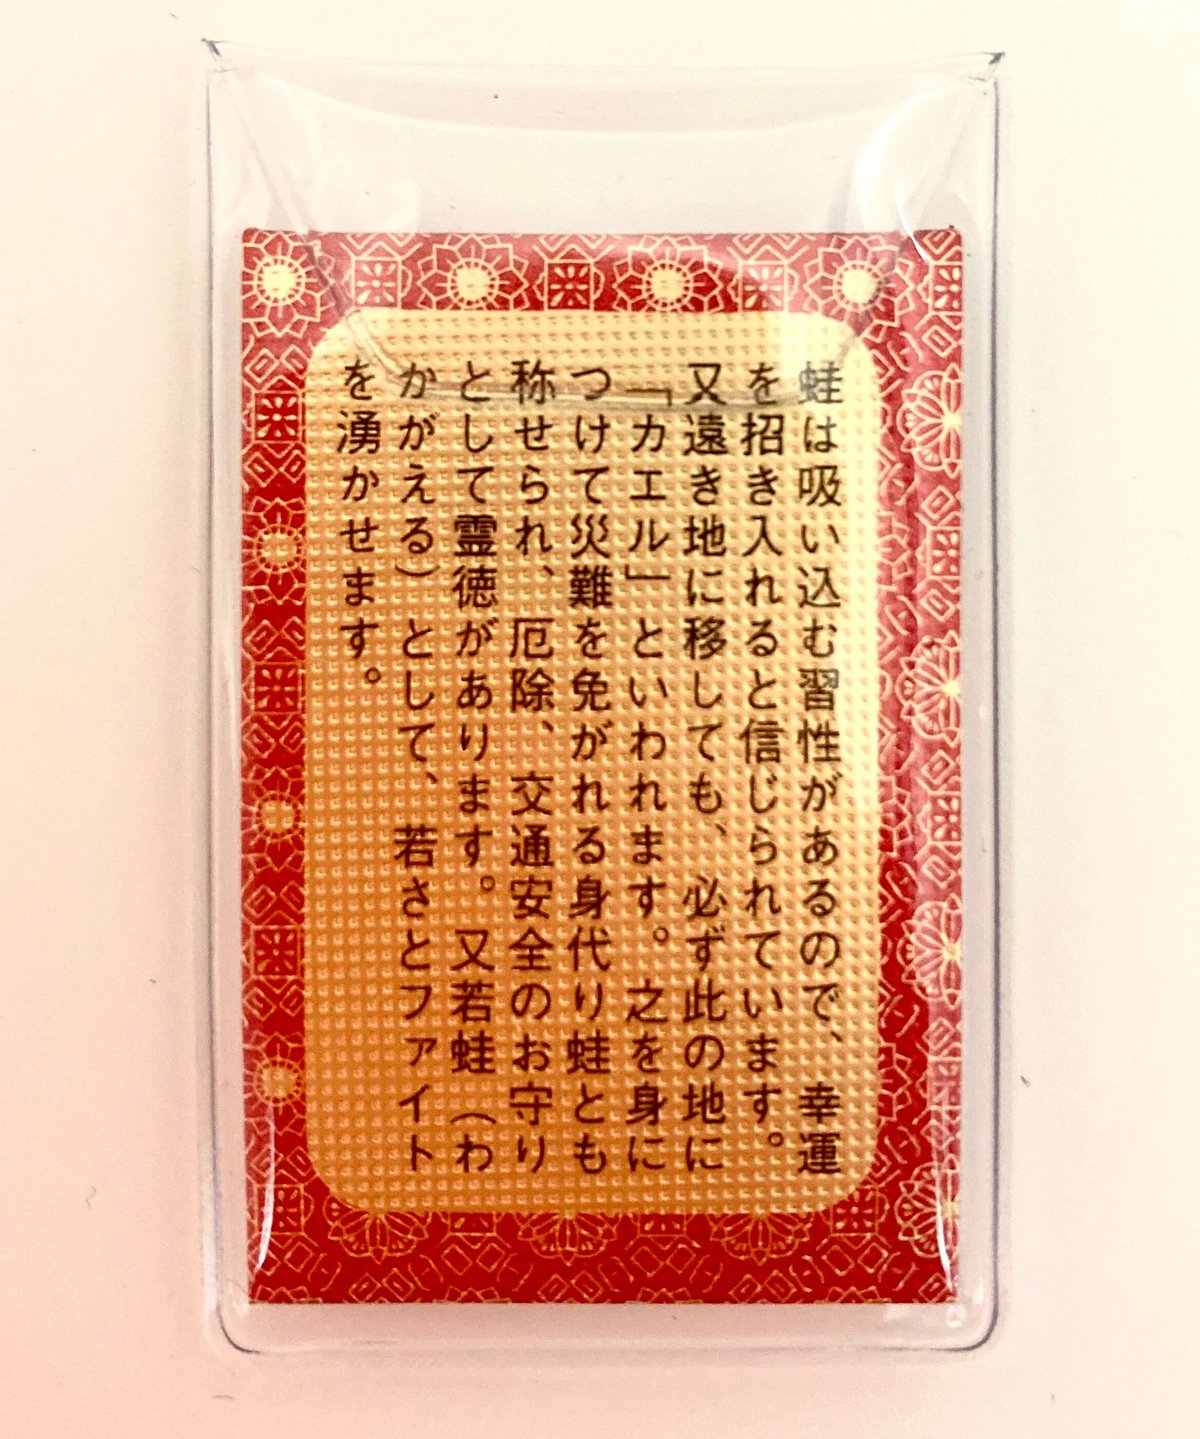 蛙は吸い込む習性があるので、幸運
を招き入れると信じられています。
又遠き地に移しても、必ず此の地に
「カエル」といわれます。之を身に
つけて災難を免がれる身代り蛙とも
称せられ、厄除、交通安全のお守り
として霊徳があります。又若蛙（わ
かがえる）として、若さとファイト
を湧かせます。